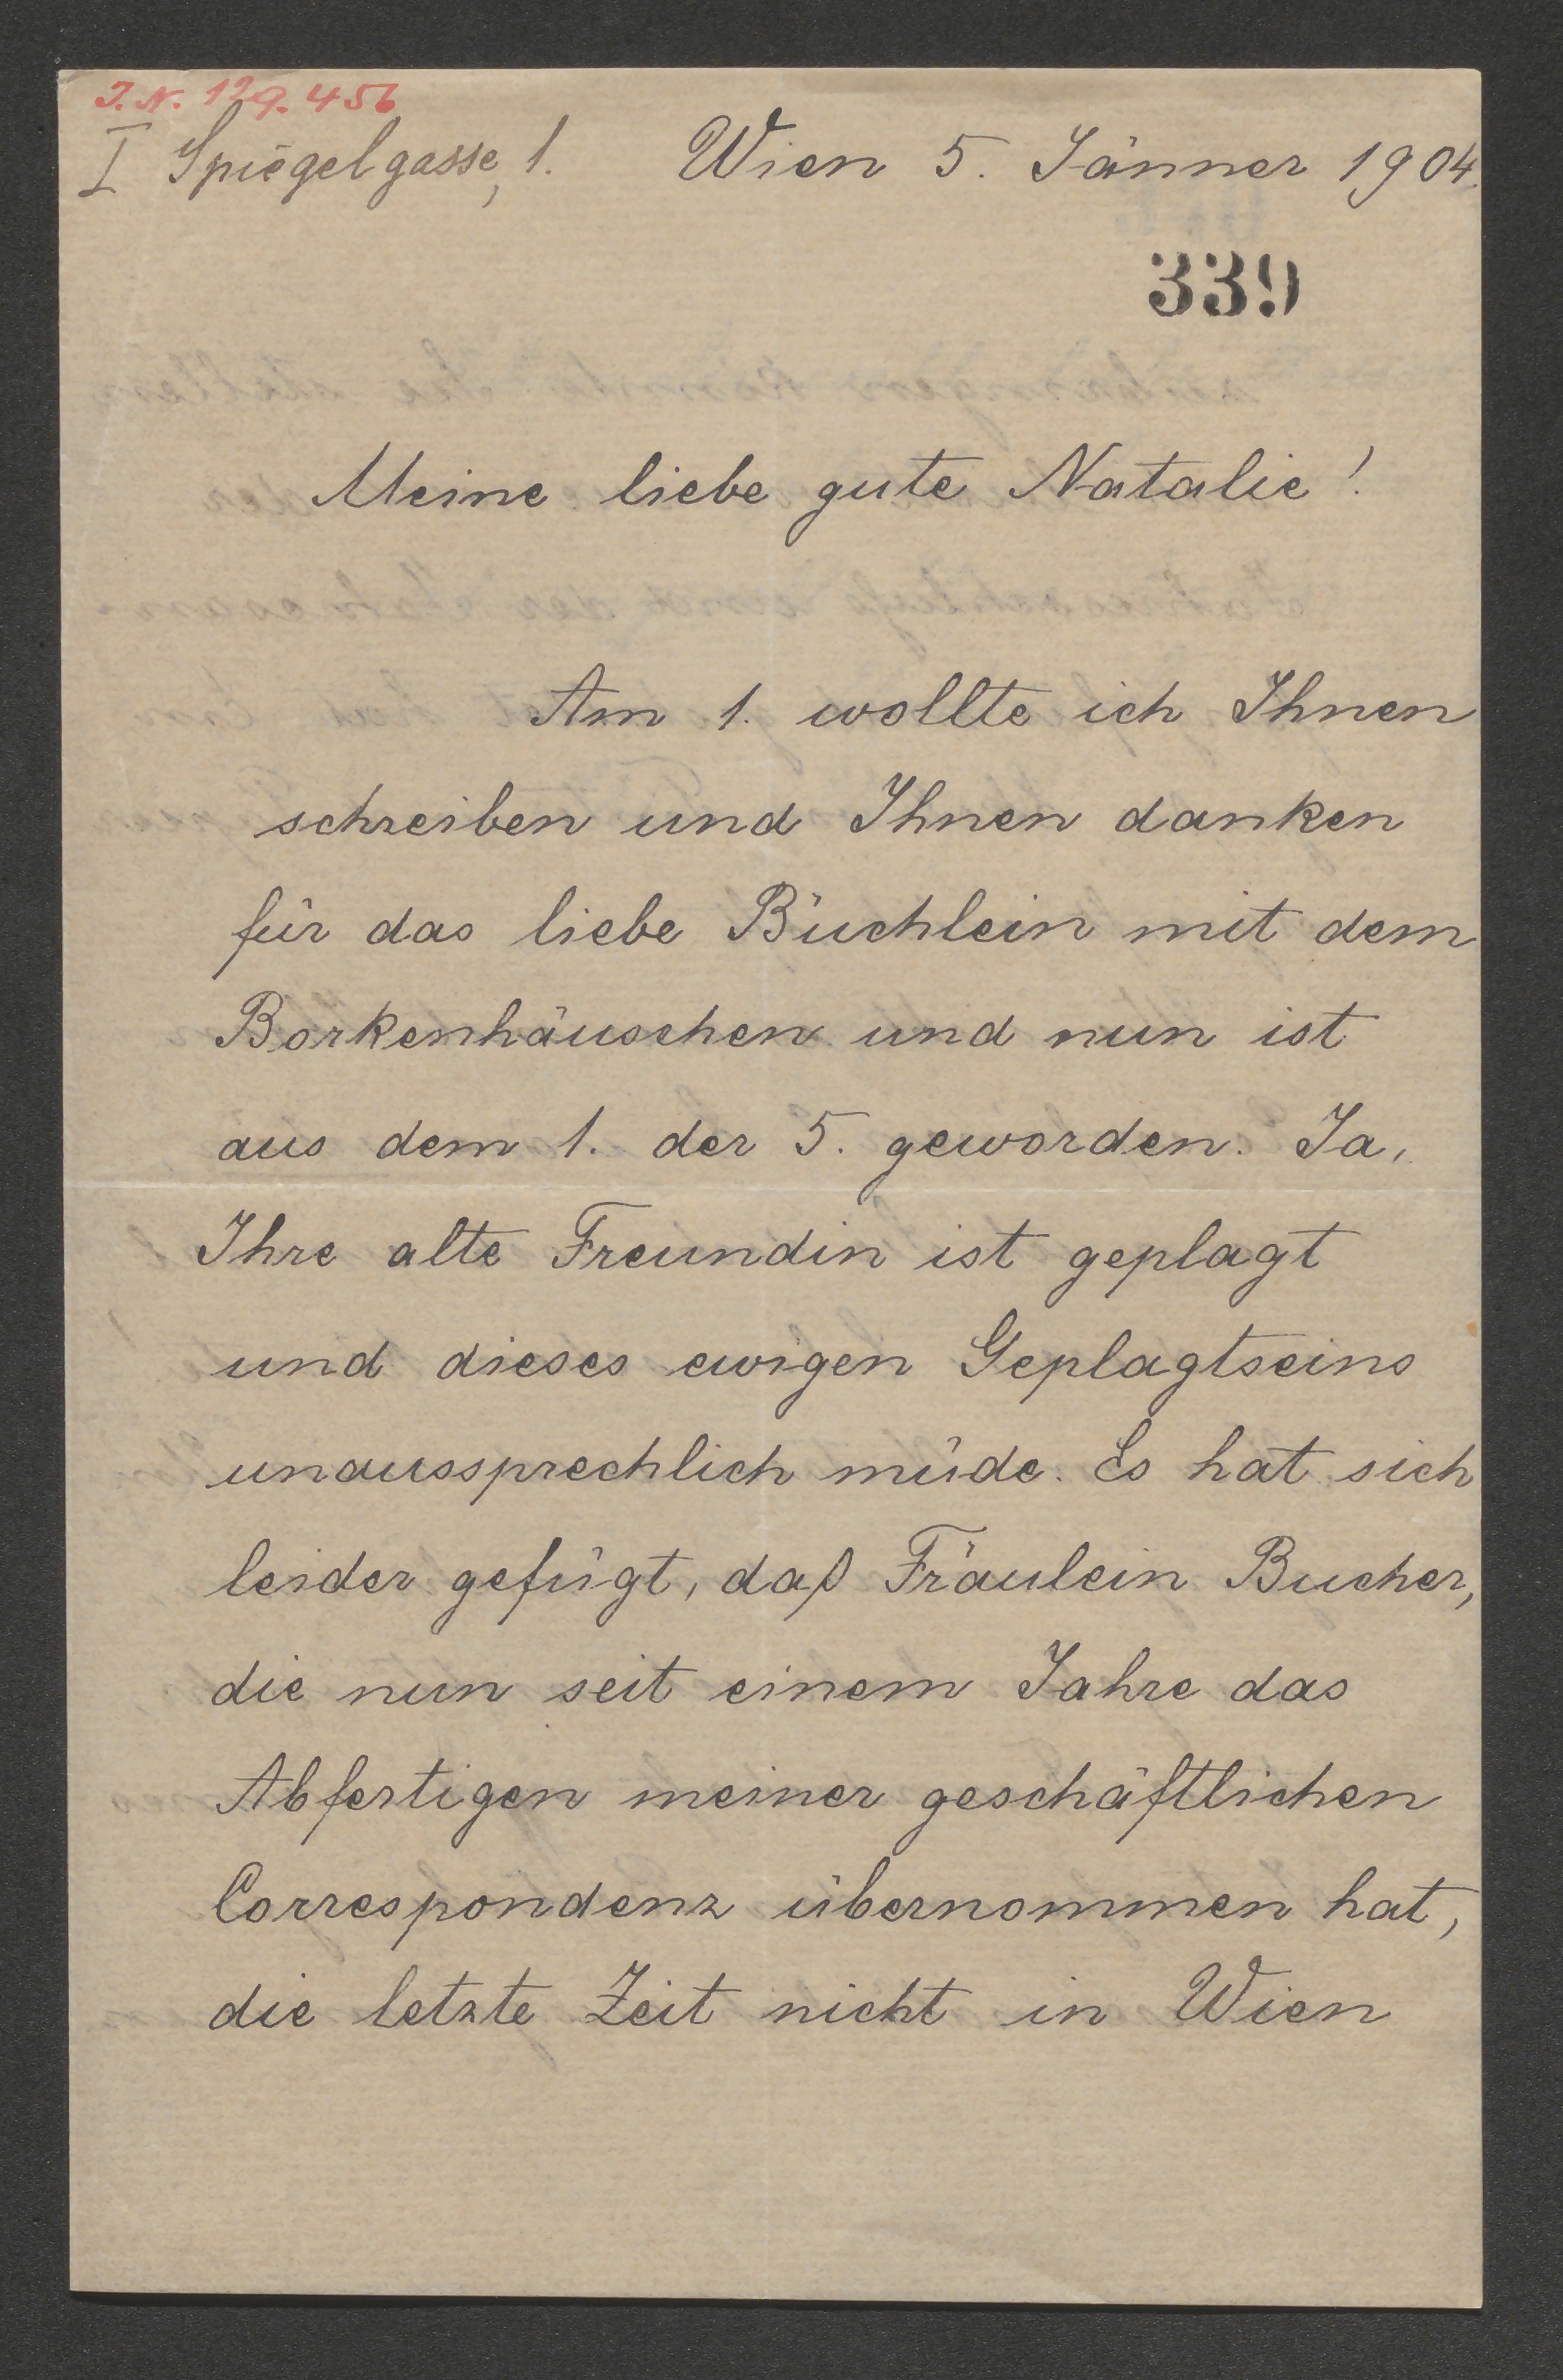 J. N. 129.456
I Spiegelgasse, 1. Wien 5. Jänner 1904.
339
Meine liebe gute Natalie!
Am 1. wollte ich Ihnen
schreiben und Ihnen danken
für das liebe Büchlein mit dem
Borkenhäuschen und nun ist
aus dem 1. der 5. geworden. Ja,
Ihre alte Freundin ist geplagt
und dieses ewigen Geplagtseins
unaussprechlich müde. Es hat sich
leider gefügt, daß Fräulein Bucher,
die nun seit einem Jahre das
Abfertigen meiner geschäftlichen
Correspondenz übernommen hat,
die letzte Zeit nicht in Wien